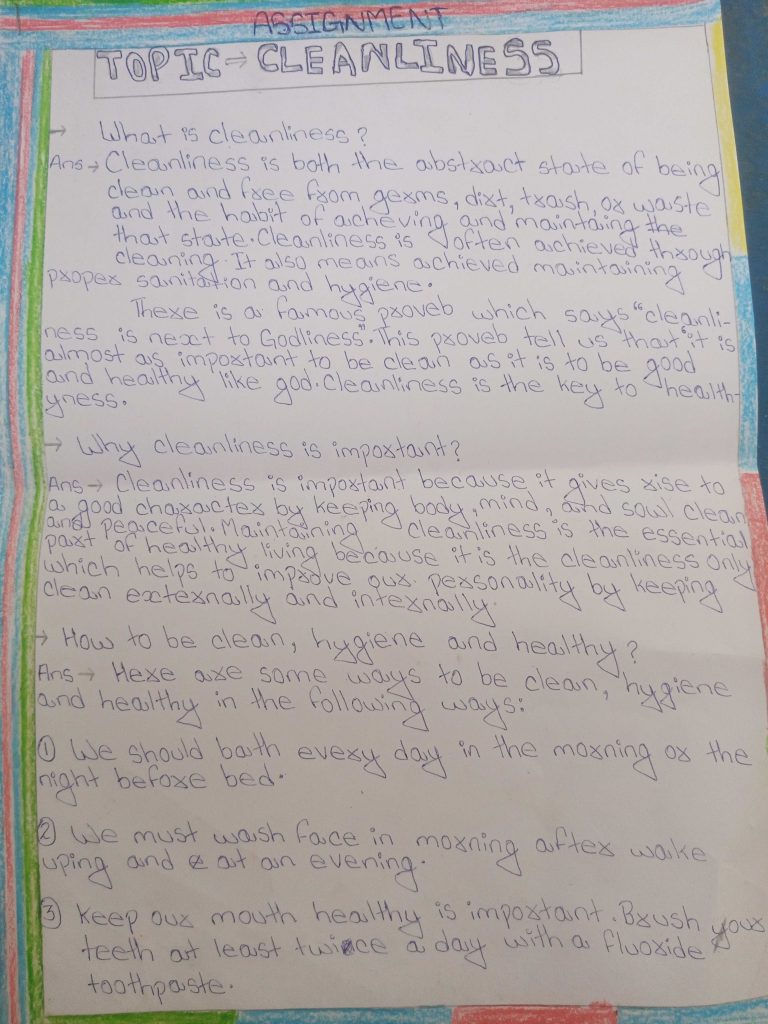 ASSIGNMENT
TOPIC → CLEANLINESS
→ What is cleanliness?
Ans → Cleanliness is both the abstract state of being
clean and free from germs, dirt, trash, or waste
and the habit of acheving and maintaing the
that state. Cleanliness is often achieved through
cleaning. It also means achieved maintaining
proper sanitation and hygiene.
There is a famous proveb which says "cleanli-
ness is next to Godliness". This proveb tell us that "it is
almost as important to be clean as it is to be good
and healthy like god. Cleanliness is the key to health-
yness.
→ Why cleanliness is important?
Ans → Cleanliness is important because it gives rise to
a good character by keeping body, mind, and soul clean
and peaceful. Maintaining cleanliness is the essential
part of healthy living because it is the cleanliness only
which helps to improve our personality by keeping
clean externally and internally.
→ How to be clean, hygiene and healthy?
Ans → Here are some ways to be clean, hygiene
and healthy in the following ways:
① We should bath every day in the morning or the
night before bed.
② We must wash face in morning after wake
uping and at an evening.
③ Keep our mouth healthy is important. Brush your
teeth at least twice a day with a fluoride
toothpaste.